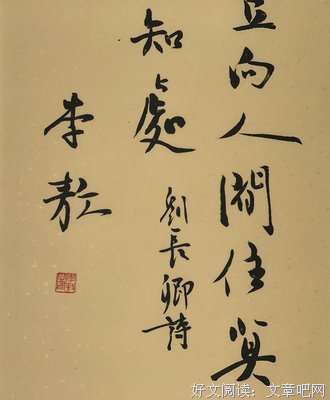 豈向人間住莫
知處
劉長卿詩
李敖
好文阅读：文章吧网